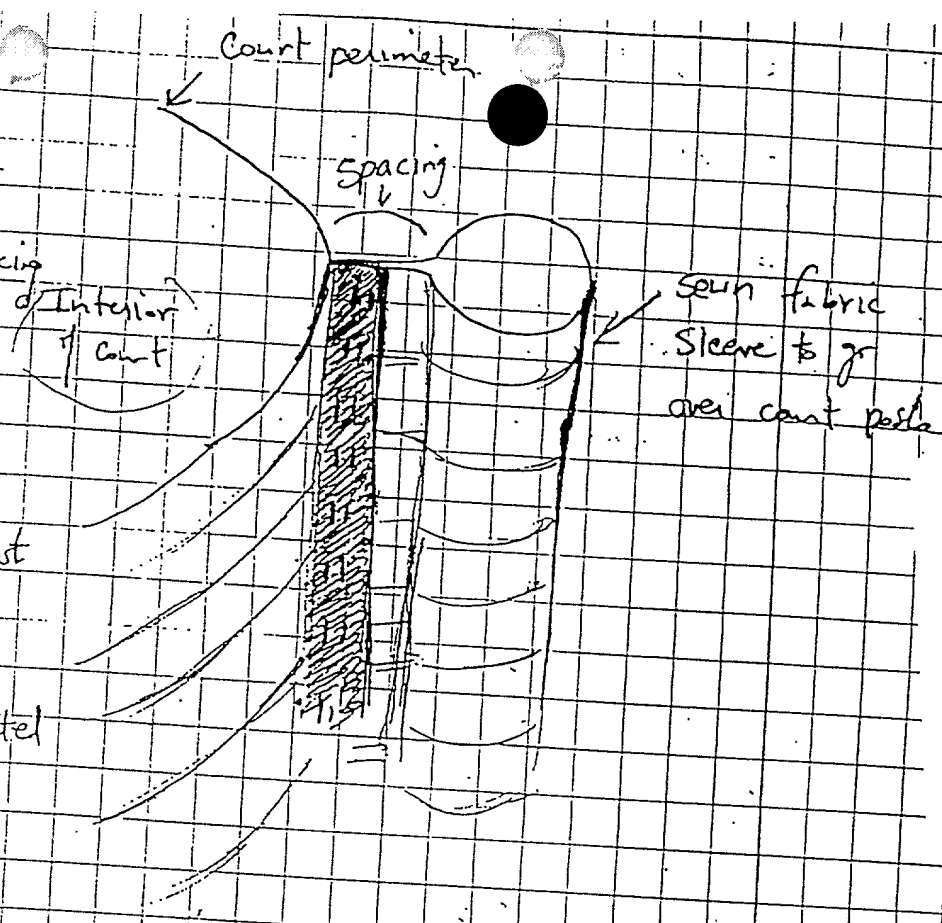 Court perimeter
Spacing
Interior
of Court
Sewn fabric
Sleeve to go
over court posts